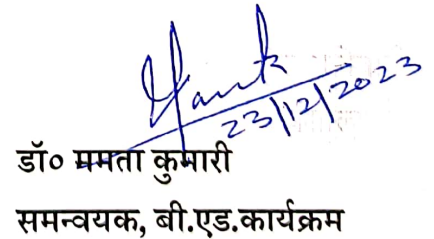 23/12/2023
डॉ० ममता कुमारी
समन्वयक, बी.एड.कार्यक्रम